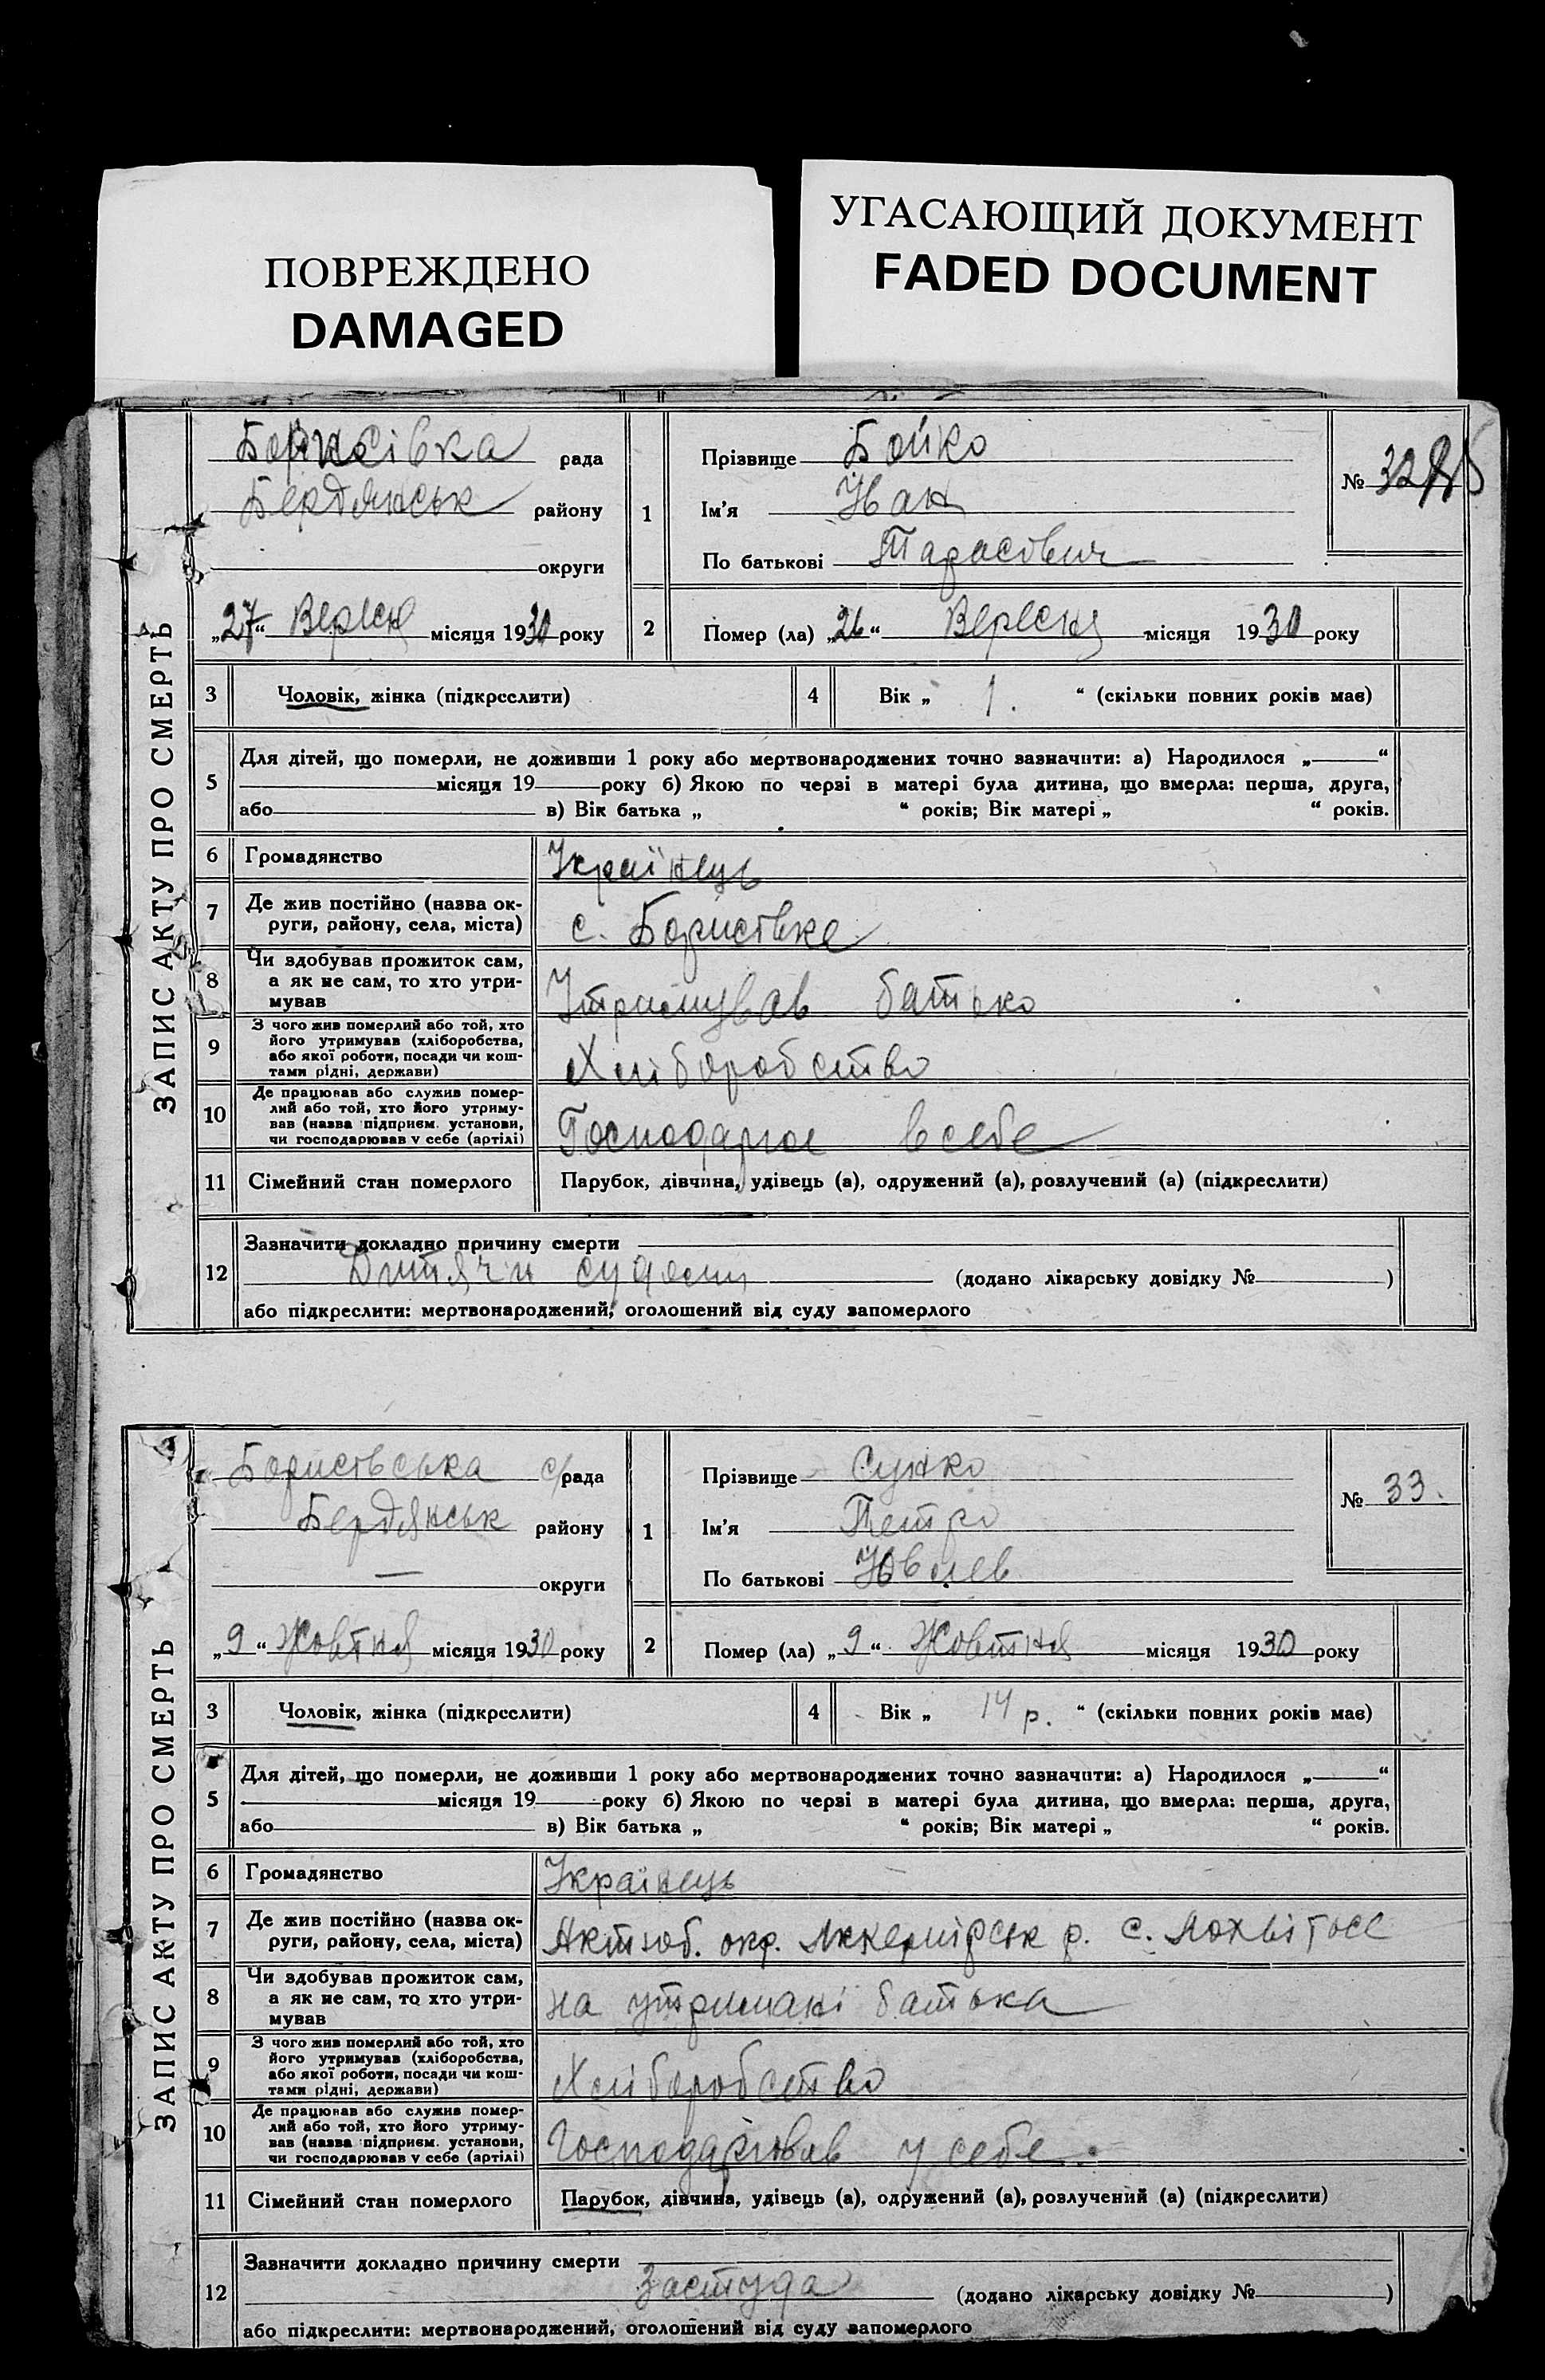 ПОВРЕЖДЕНО
DAMAGED
УГАСАЮЩИЙ ДОКУМЕНТ
FADED DOCUMENT
ЗАПИС АКТУ ПРО СМЕРТЬ
Борисівка рада
Бердянськ району
округи
„27“ Вересня місяця 1930 року
1
Прізвище Бойко
Ім'я Іван
По батькові Тарасович
№ 32
2 Помер (ла) „26“ Вересня місяця 1930 року
3 Чоловік, жінка (підкреслити)
4 Вік „ 1. “ (скільки повних років має)
5 Для дітей, що померли, не доживши 1 року або мертвонароджених точно зазначити: а) Народилося „ “
місяця 19 року б) Якою по черзі в матері була дитина, що вмерла: перша, друга,
або в) Вік батька „ “ років; Вік матері „ “ років.
6 Громадянство Українець
7 Де жив постійно (назва ок-
руги, району, села, міста) с. Борисівка
8 Чи здобував прожиток сам,
а як не сам, то хто утри-
мував Утримував батько
9 З чого жив померлий або той, хто
його утримував (хліборобства,
або якої роботи, посади чи кош-
тами рідні, держави) Хліборобство
10 Де працював або служив помер-
лий або той, хто його утриму-
вав (назва підприєм. установи,
чи господарював у себе (артілі) Господарює в себе
11 Сімейний стан померлого Парубок, дівчина, удівець (а), одружений (а), розлучений (а) (підкреслити)
12 Зазначити докладно причину смерти
Дитячи (додано лікарську довідку № )
або підкреслити: мертвонароджений, оголошений від суду запомерлого
ЗАПИС АКТУ ПРО СМЕРТЬ
Борисівська с/рада
Бердянськ району
— округи
„9“ Жовтня місяця 1930 року
1
Прізвище Сушко
Ім'я Петро
По батькові
№ 33.
2 Помер (ла) „9“ Жовтня місяця 1930 року
3 Чоловік, жінка (підкреслити)
4 Вік „ 14 р. “ (скільки повних років має)
5 Для дітей, що померли, не доживши 1 року або мертвонароджених точно зазначити: а) Народилося „ “
місяця 19 року б) Якою по черзі в матері була дитина, що вмерла: перша, друга,
або в) Вік батька „ “ років; Вік матері „ “ років.
6 Громадянство Українець
7 Де жив постійно (назва ок-
руги, району, села, міста) Актюб. окр. р. с.
8 Чи здобував прожиток сам,
а як не сам, то хто утри-
мував на утримані батька
9 З чого жив померлий або той, хто
його утримував (хліборобства,
або якої роботи, посади чи кош-
тами рідні, держави) Хліборобство
10 Де працював або служив помер-
лий або той, хто його утриму-
вав (назва підприєм. установи,
чи господарював у себе (артілі) Господарював у себе.
11 Сімейний стан померлого Парубок, дівчина, удівець (а), одружений (а), розлучений (а) (підкреслити)
12 Зазначити докладно причину смерти
Застуда (додано лікарську довідку № )
або підкреслити: мертвонароджений, оголошений від суду запомерлого